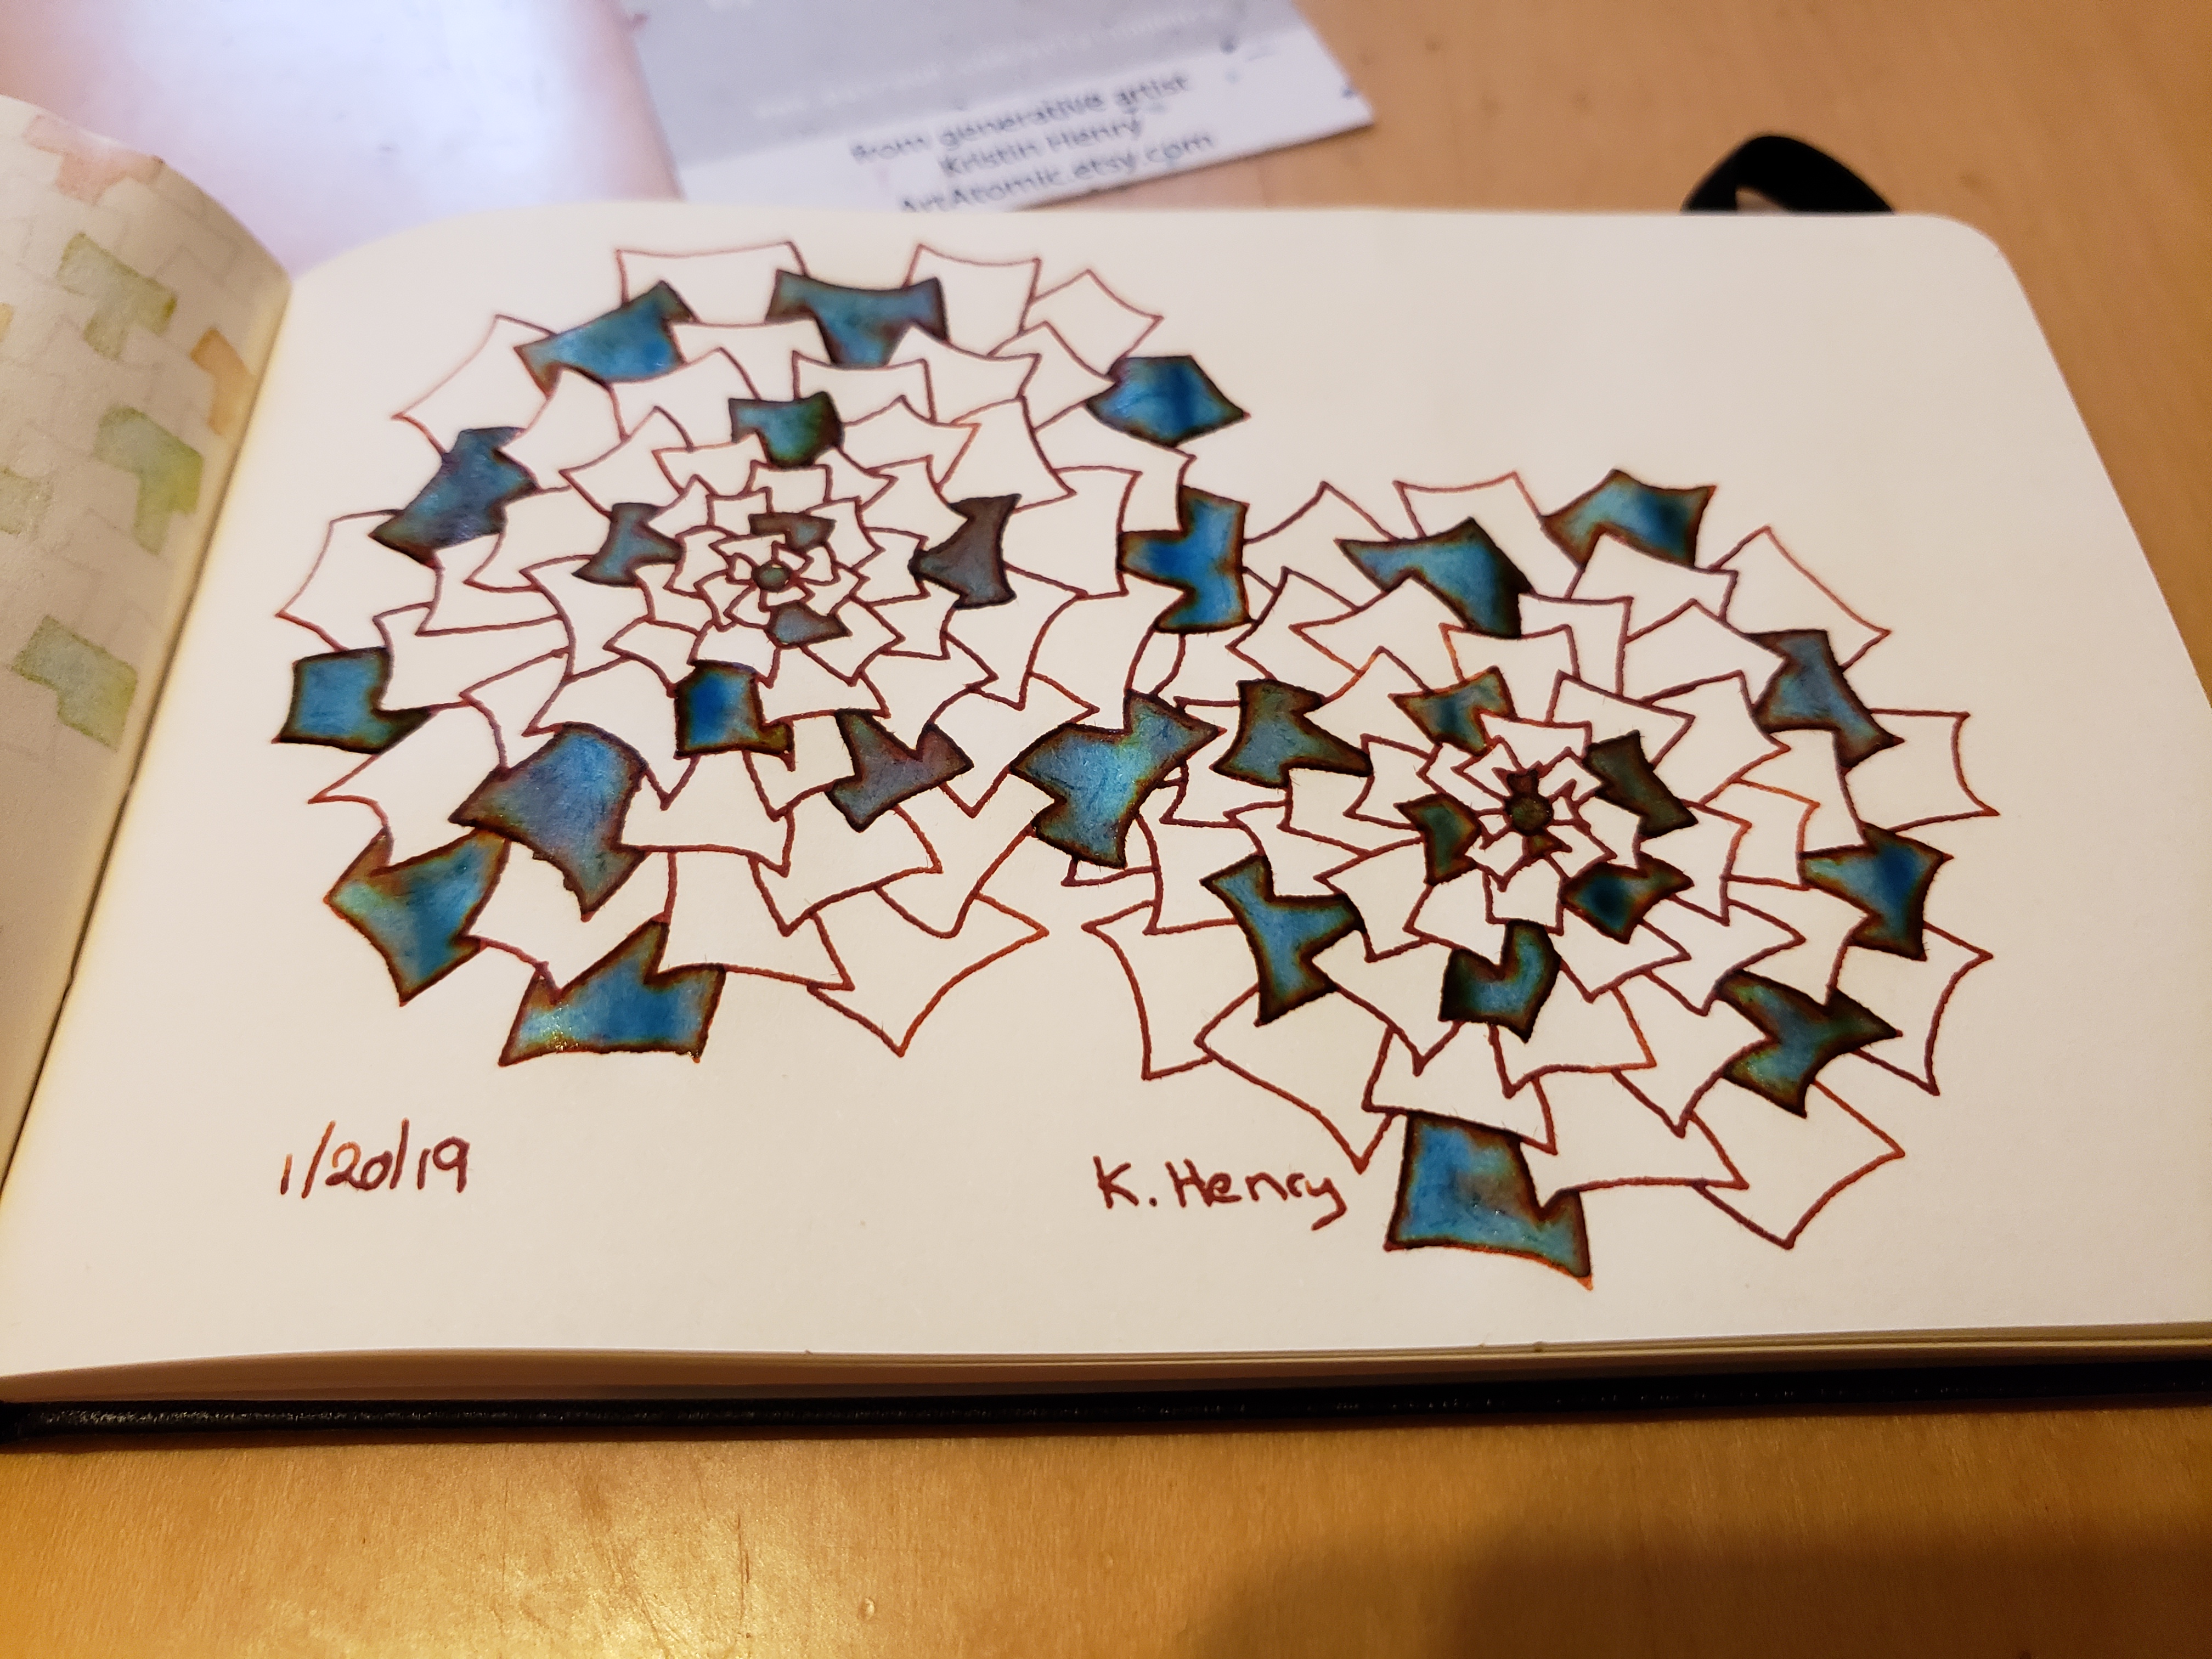 from generative artist
Kristin Henry
ArtAtomic.etsy.com
1/20/19
K. Henry